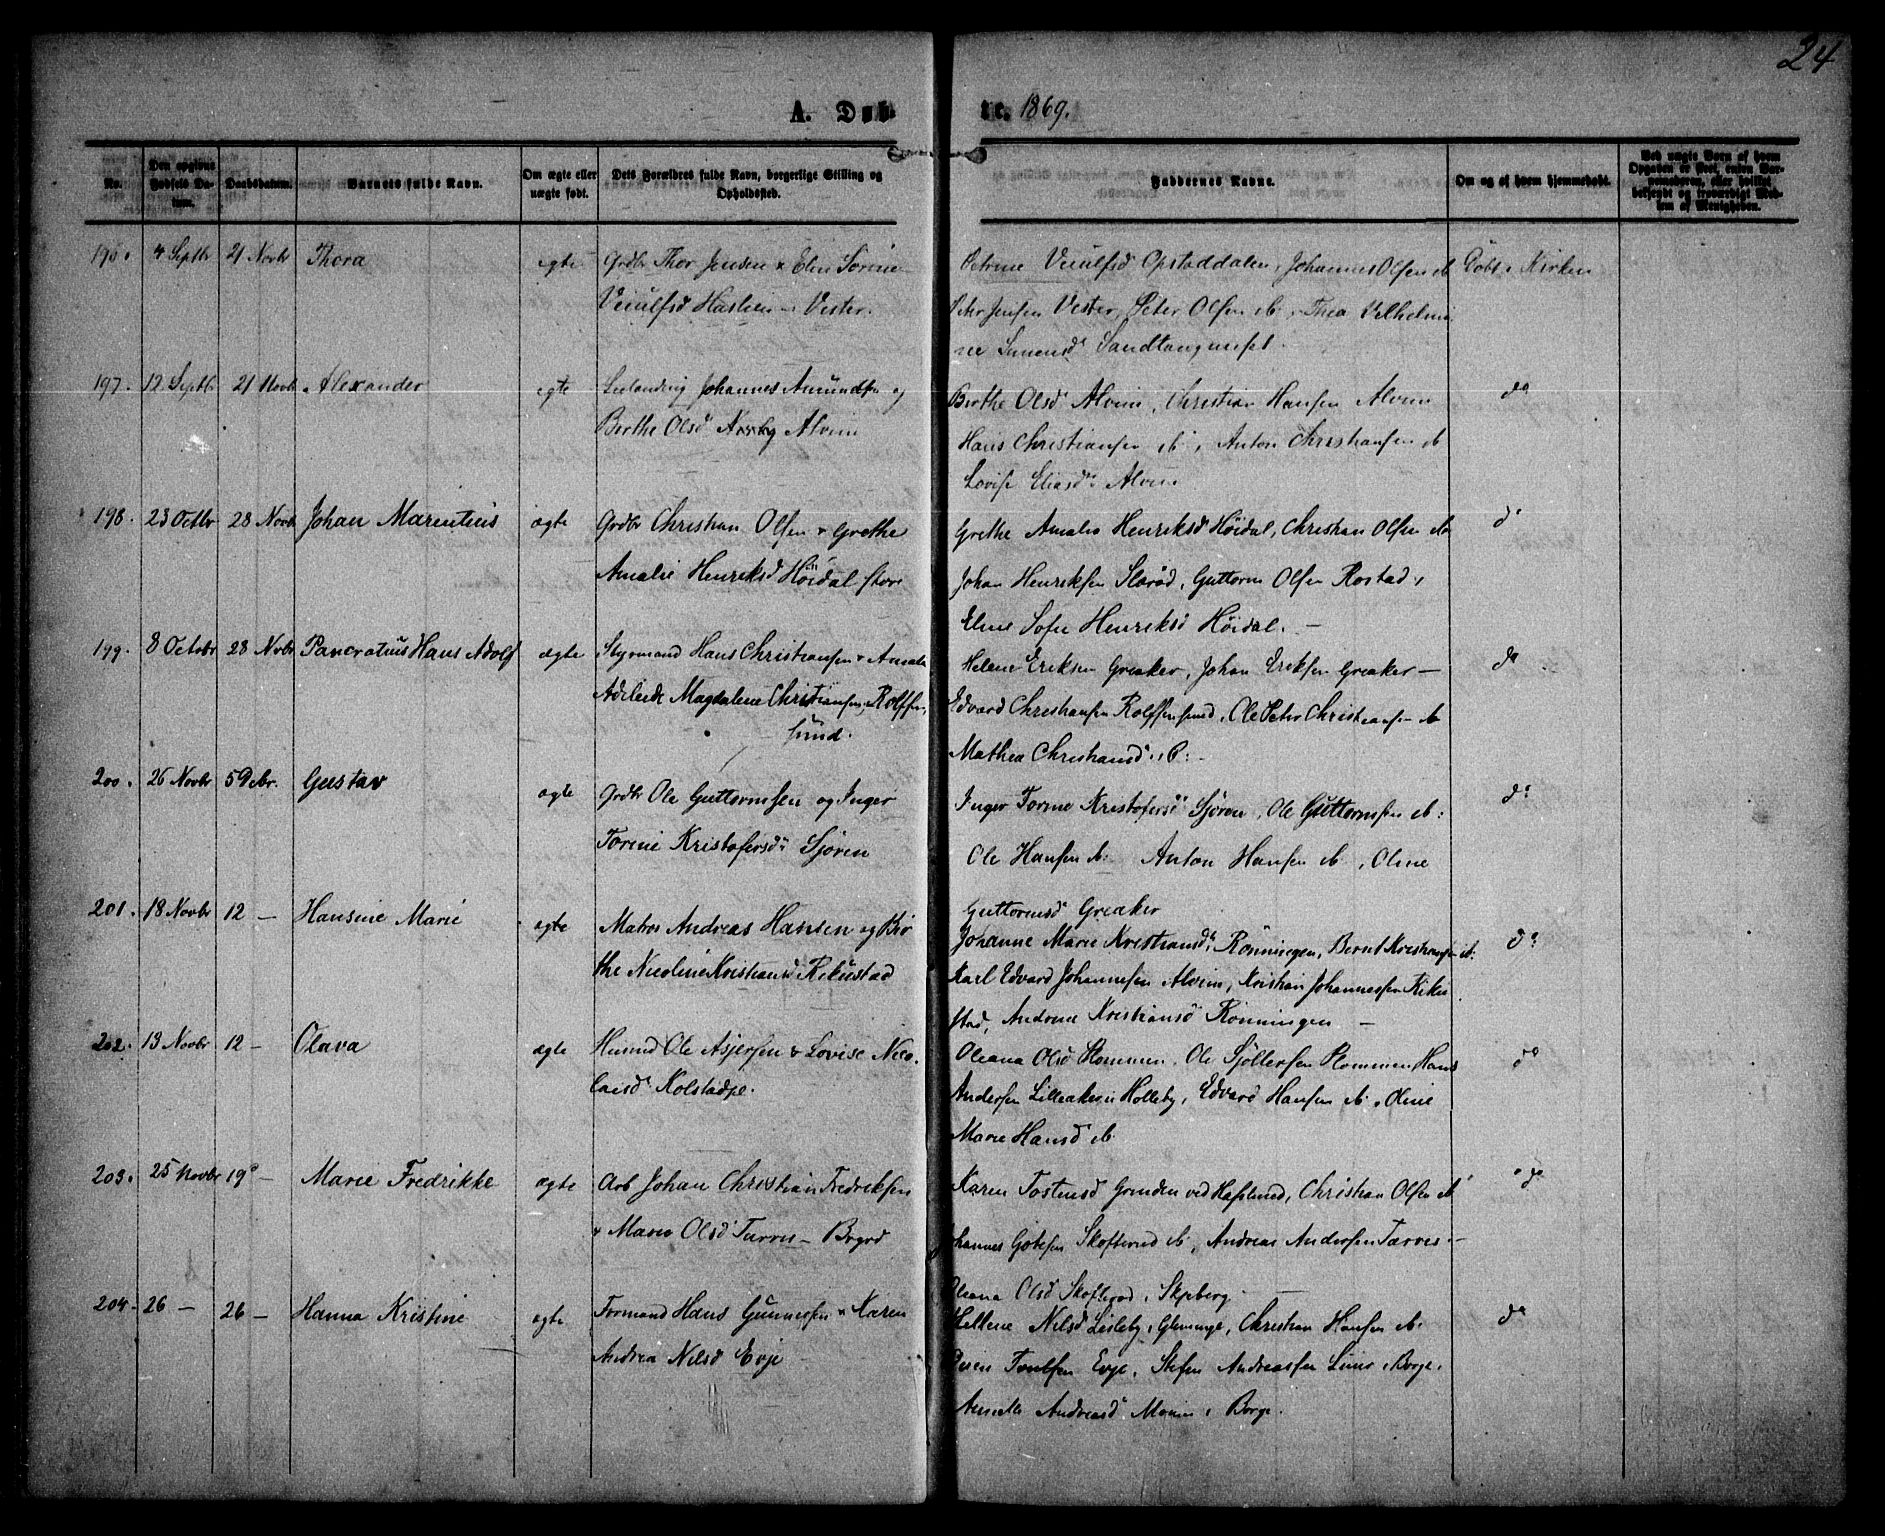 24
A. Døb te. 1869.
No.
Den opgivne Fødsels Datum.
Daabsdatum.
Barnets fulde Navn.
Om ægte eller uægte født.
Dets Forældres fulde Navn, borgerlige Stilling og Opholdssted.
Faddernes Navne.
Om og af hvem hjemmedøbt.
Ved uægte Børn af hvem Opgaven er skeet, enten Barnemoderen, eller hvilket bekjendt og troværdigt Medlem af Menigheden.
196. 4 Septbr 21 Novbr Thora ægte Grdbr Thor Jensen & Elen Sørine
Veiulfsd Haslien Vester.
Petrine Veiulfsd Opstaddalen, Johannes Olsen ib Døbt i Kirken
Peter Jensen Vester, Peter Olsen ib, Thea Vilhelmi
ne Simensd
197. 12 Septbr 21 Novb Alexander ægte Leilænding Johannes Amundsen og
Berthe Olsd Alvim
Berthe Olsd Alvim, Christian Hansen Alvim do
Hans Christiansen ib, Anton Christiansen ib
Lovise Eliasd Alvim
198. 23 Octbr 28 Novb Johan Marentius ægte Grdbr Christian Olsen & Grethe
Amalie Henriksd Höidal store
Grethe Amalie Henriksd Höidal, Christian Olsen ib do
Johan Henriksen Slaröd, Guttorm Olsen Rostad,
Eline Sofie Henriksd Höidal. —
199. 8 Octobr 28 Novbr Pancratius Hans Adolf ægte Styrmand Hans Christiansen & Amalie
Adeleide Magdalene Christiansen, Rolffsen
sund.
Helene Eriksen Greaker, Johan Eriksen Greaker — do
Edvard Christiansen Rolffsensund, Ole Peter Christiansen ib
Mathea Christiansd ib: —
200. 26 Novbr 5 Debr. Gustav ægte Grdbr Ole Guttormsen og Inger
Torine Kristofersd Sjøren
Inger Torine Kristofersd Sjøren, Ole Guttormsen ib: do
Ole Hansen ib: Anton Hansen ib, Oline
Guttormsd Greaker
201. 18 Novbr 12 — Hansine Marie ægte Matros Andreas Hansen og Bir
the Nicoline Kristiansd Rikustad
Johanne Marie Kristiansd Rönningen, Bernt Kristiansen ib: do
Karl Edvard Johannesen Alvim, Kristian Johannessen Riku
stad, Andrine Kristiansd Rönningen —
202. 13 Novbr 12 — Olava ægte Husmd Ole Asjersen & Lovise Nico
laisd Kolstadpl.
Oleana Olsd Plommen, Ole Plommen Hans do
Andersen Lilleakeren Holleby, Edvard Hansen ib, Oline
Marie Hansd ib
203. 25 Novbr 19 — Marie Fredrikke ægte Arb Johan Christian Fredriksen
& Maren Olsd Tarves —
Karen Tostensd Grinden ved Hafslund, Christian Olsen ib do
Johannes Skofterud ib, Andreas Andersen Tarves —
Oleana Olsd Skofterød, Skjeberg —
204. 26 — 26 — Hanna Kristine ægte Formand Hans Gunnersen & Karen
Andrea Nilsd Evje
Hellene Nilsd Lisleby i Glemminge, Christian Hansen ib. do
Evje, Stefen Andreassen Borge,
Andreasd Moum i Borge.